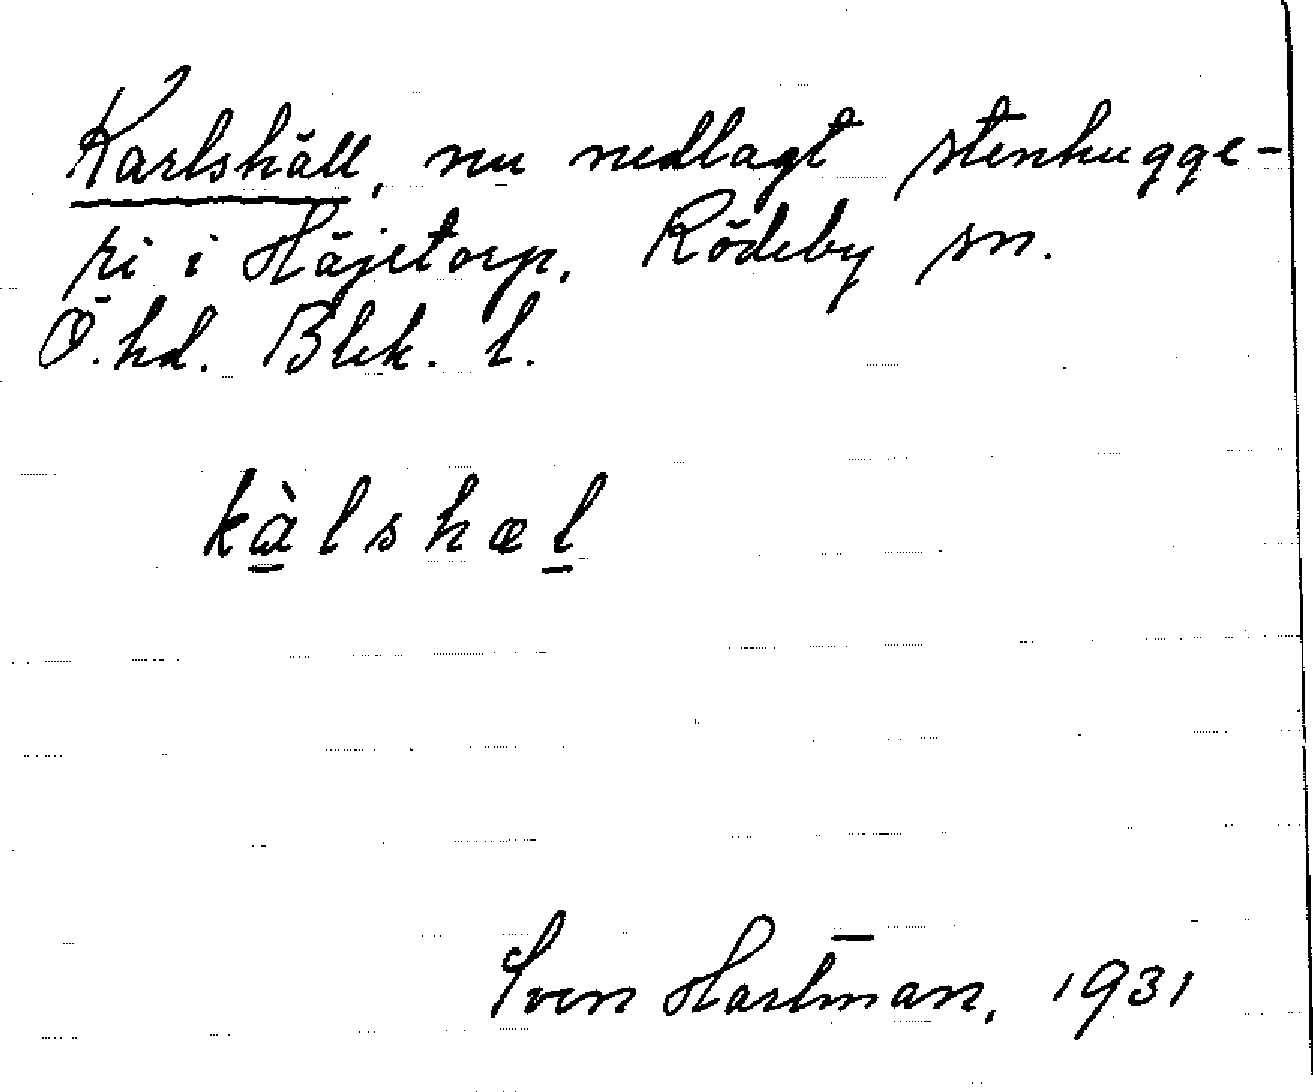 Karlshäll, nu nedlagt stenhugge-
ri i Häjetorp. Rödeby sn.
Ö. hd. Blek. l.
kàlshæl
Sven Hartman, 1931